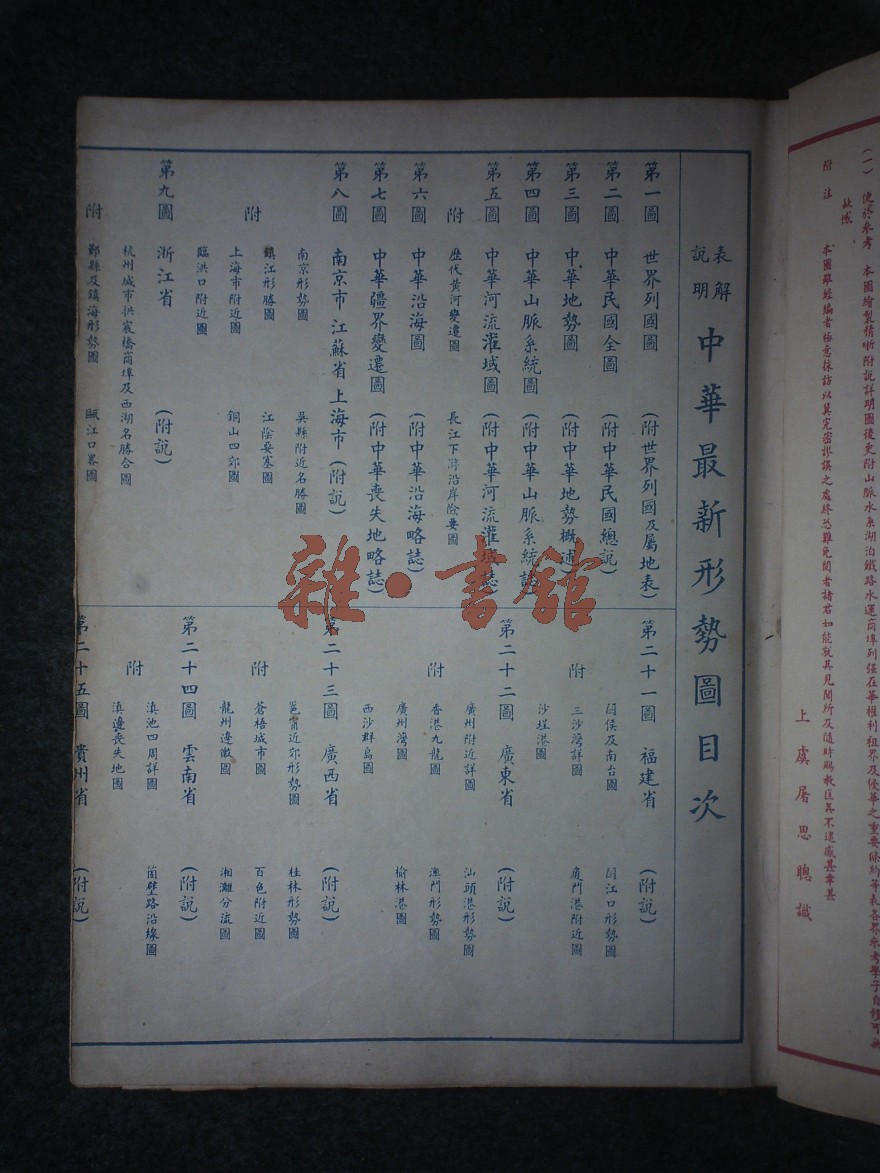 (一) 便於參考 本圖繪製精晰附說詳明圖後更附山脈水系湖泊鐵路水運商埠列強在華權利租界及侵華之重要條約等表各界參考學子自修可無
缺憾
附注 本圖雖經編者極意採訪以冀完密謬誤之處終恐難免閱者諸君如能就其見聞所及隨時賜教匡其不逮感甚幸甚
上虞屠思聰識
表解
說明
中華最新形勢圖目次
第一圖 世界列國圖 (附世界列國及屬地表)
第二圖 中華民國全圖 (附中華民國總說)
第三圖 中華地勢圖 (附中華地勢概述)
第四圖 中華山脈系統圖 (附中華山脈系統誌)
第五圖 中華河流灌域圖 (附中華河流灌域誌)
附 歷代黃河變遷圖 長江下游沿岸險要圖
第六圖 中華沿海圖 (附中華沿海略誌)
第七圖 中華疆界變遷圖 (附中華喪失地略誌)
第八圖 南京市 江蘇省 上海市 (附說)
南京形勢圖 吳縣附近名勝圖
附 鎮江形勝圖 江陰要塞圖
上海市附近圖 銅山四郊圖
臨洪口附近圖
第九圖 浙江省 (附說)
杭州城市拱宸橋商埠及西湖名勝合圖
附 鄞縣及鎮海形勢圖 甌江口畧圖
第二十一圖 福建省 (附說)
閩侯及南台圖 閩江口形勢圖
附 三沙灣詳圖 廈門港附近圖
沙埕港圖
第二十二圖 廣東省 (附說)
廣州附近詳圖 汕頭港形勢圖
附 香港九龍圖 澳門形勢圖
廣州灣圖 榆林港圖
西沙群島圖
第二十三圖 廣西省 (附說)
邕甯近郊形勢圖 桂林形勢圖
附 蒼梧城市圖 百色附近圖
龍州邊徼圖 湘灕分流圖
第二十四圖 雲南省 (附說)
滇池四周詳圖 箇壁路沿線圖
附 滇邊喪失地圖
第二十五圖 貴州省 (附說)
雜·書館